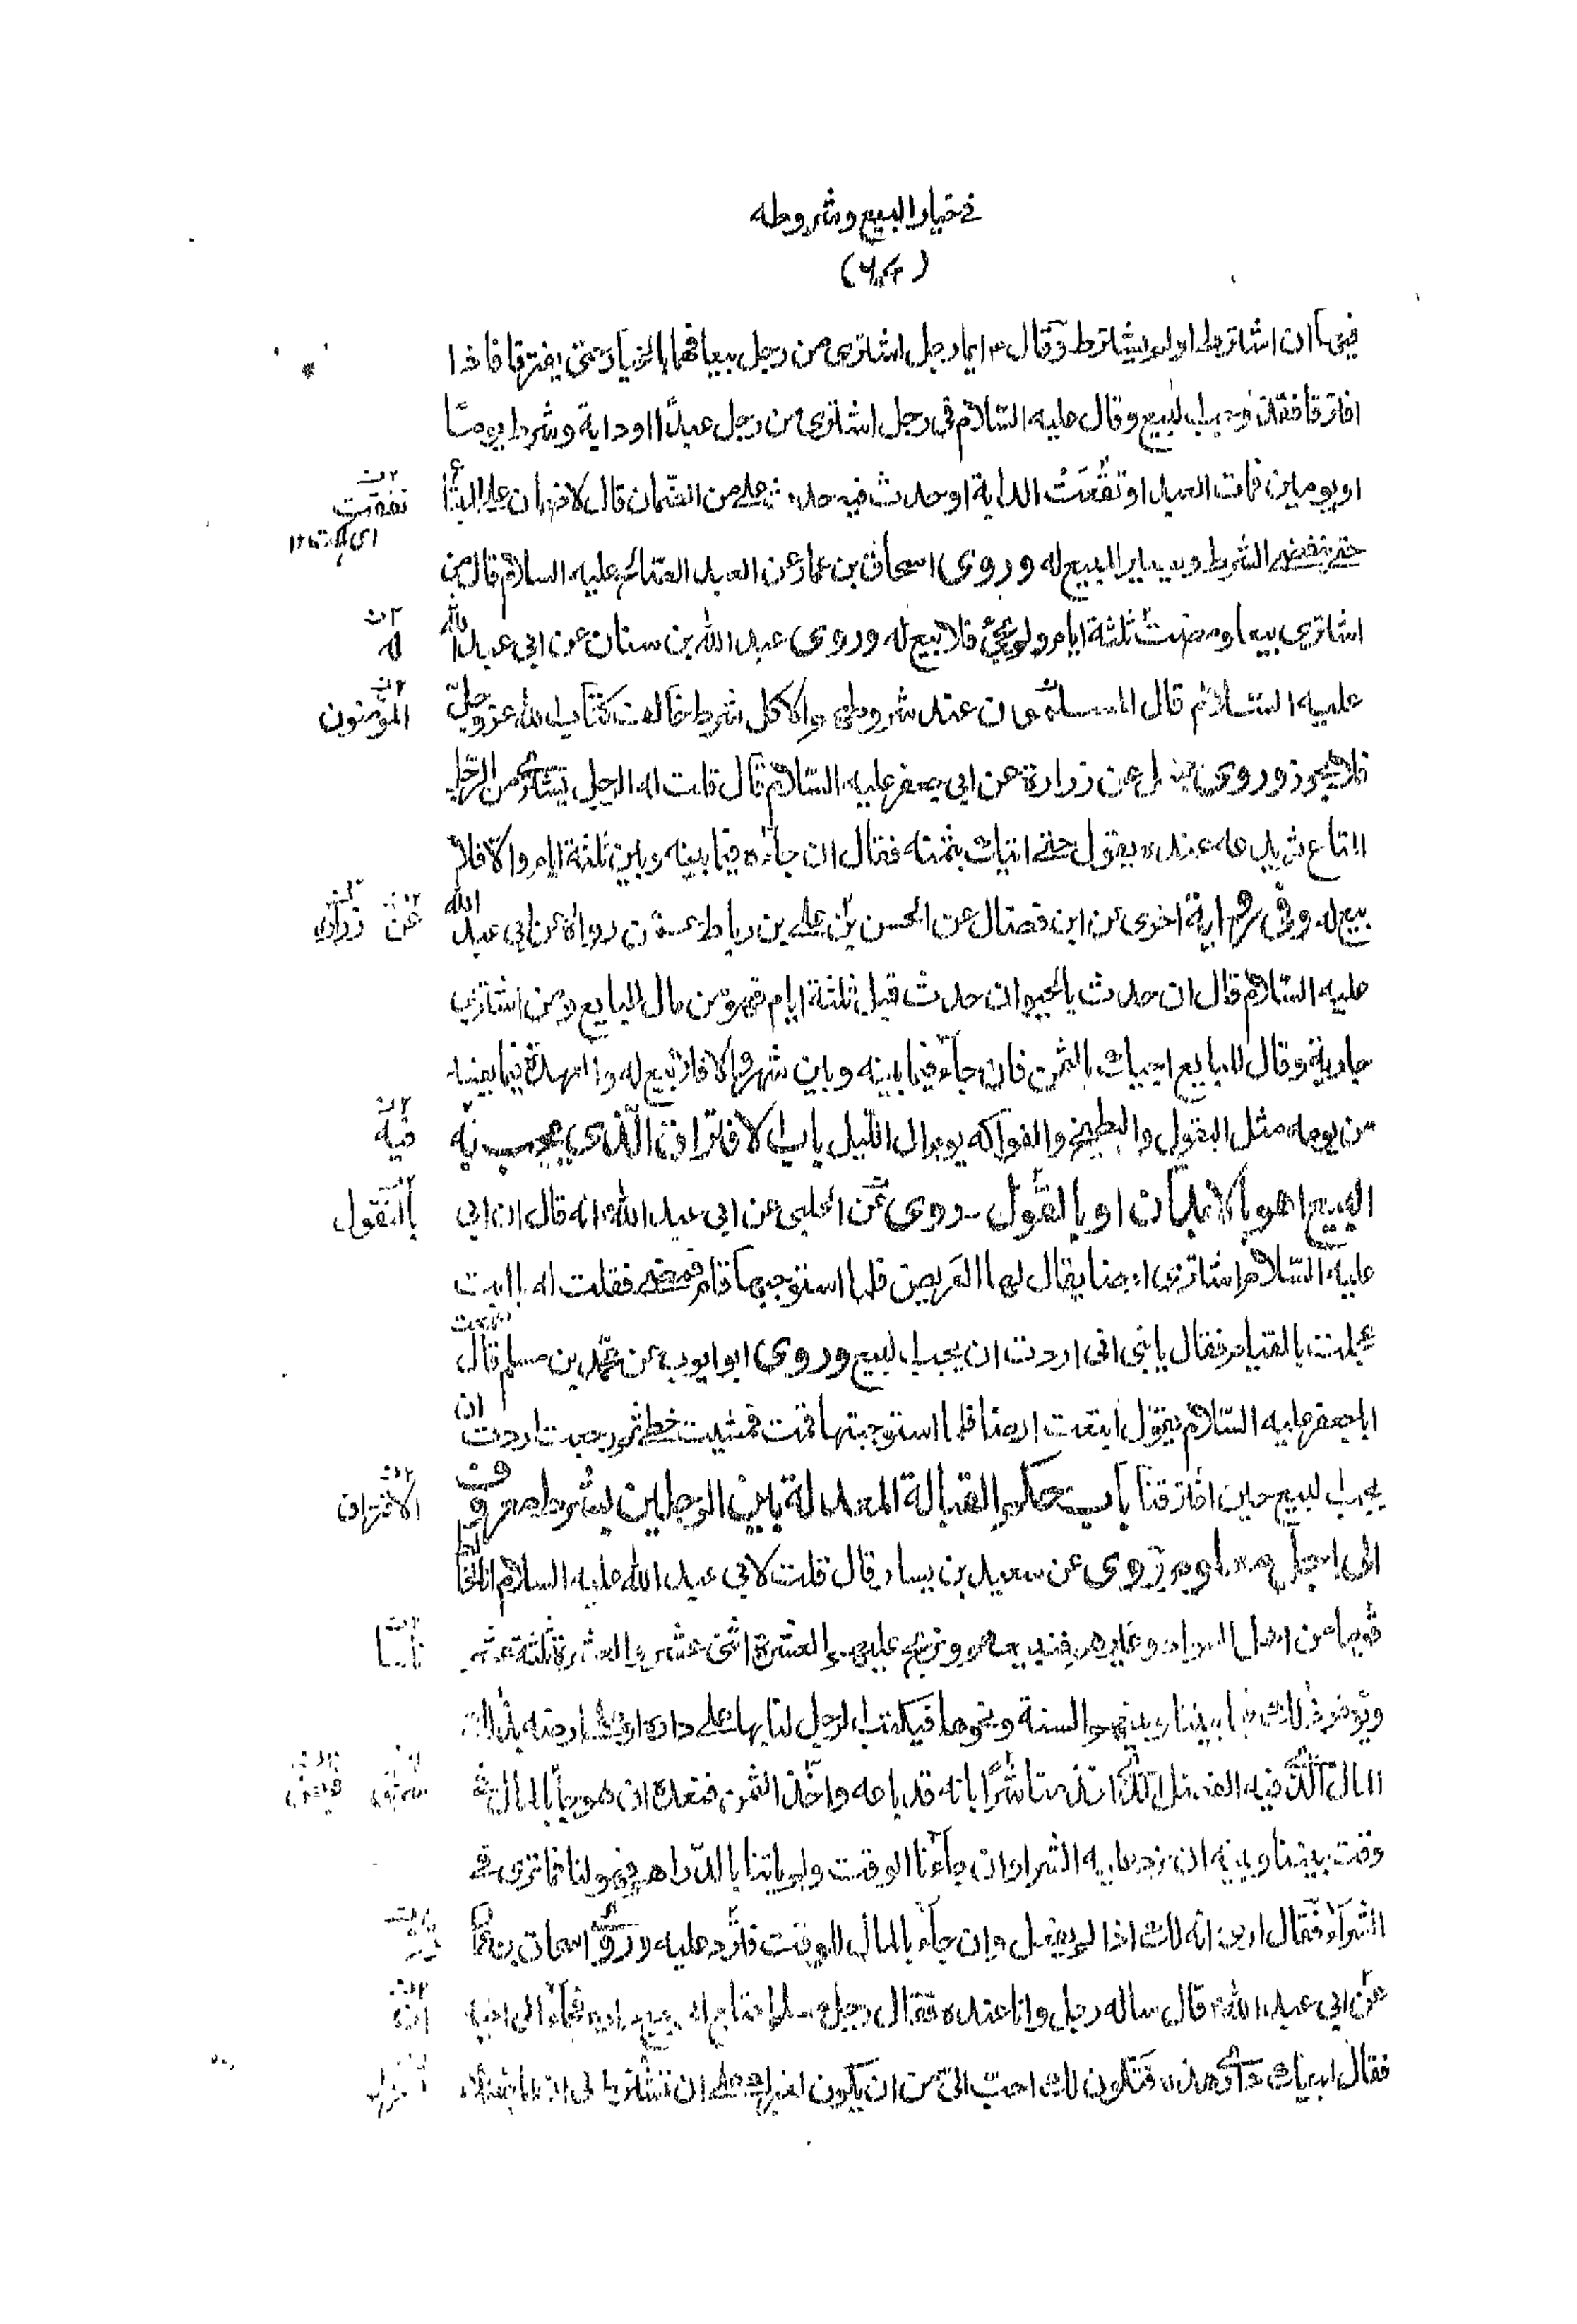 في خيار البيع وشروطه
فيها ان اشترط او لم يشترط وقال ع ايما رجل اشترى من رجل بيعا فهما بالخيار حتى يفترقا فاذا
افترقا فقد وجب البيع وقال عليه السلام في رجل اشترى من رجل عبدًا او دابة وشرط يومًا
او يومين فمات العبد او نفقت الدابة او حدث فيه حدث على من الضمان قال لا ضمان على المبتاع
نفقت
اى هلكت ١٢
حتى ينقضى الشرط ويصير المبيع له وروى اسحاق بن عمار عن العبد الصالح عليه السلام قال من
اشترى بيعا ومضت ثلثة ايام ولم يجئ فلا بيع له وروى عبد الله بن سنان عن ابى عبد الله
له
عليه السلام قال المسلمون عند شروطهم الا كل شرط خالف كتاب الله عز وجل
المؤمنون
فلا يجوز وروى جميل عن زرارة عن ابى جعفر عليه السلام قال قلت له الرجل يشترى من الرجل
المتاع ثم يدعه عنده يقول حتى اتيك بثمنه فقال ان جاء فيما بينه وبين ثلثة ايام والا فلا
بيع له وفى رواية اخرى عن ابن فضال عن الحسن بن على بن رباط عمن رواه عن ابى عبد الله
عن زرارة
عليه السلام قال ان حدث بالحيوان حدث قبل ثلثة ايام فهو من مال البايع ومن اشترى
جارية وقال للبايع اجيئك بالثمن فان جاء فيما بينه وبين شهر والا فلا بيع له والعهدة فيما يفسد
من يومه مثل البقول والبطيخ والفواكه يوم الى الليل باب الافتراق الذى يجب به
فيه
البيع اهو بالابدان او بالقول روى عن الحلبى عن ابى عبد الله ع انه قال ان ابى
بالقول
عليه السلام اشترى ارضا يقال لها العريض فلما استوجبها قام فمضى فقلت له يا ابت
عجلت بالقيام فقال يا بنى انى اردت ان يجب البيع وروى ابو ايوب عن محمد بن مسلم قال سمعت
ابا جعفر عليه السلام يقول ابتعت ارضا فلما استوجبتها قمت فمشيت خطى ثم رجعت اردت ان
يجب البيع حين افترقنا باب حكم القبالة المعدلة بين الرجلين بشرط معروف
الافتراق
الى اجل معلوم روى عن سعيد بن يسار قال قلت لابى عبد الله عليه السلام انا نخالط
قوما من اهل السواد وغيرهم فنبيعهم ونربح عليهم العشرة اثنى عشر والعشرة ثلثة عشر
ناسا
ونؤخر ذلك فيما بيننا وبينهم السنة ونحوها فيكتب الرجل لنا بها على داره او على ارضه بذلك
المال الذى فيه الفضل الذى اخذ منا شراء بانه قد باعه واخذ الثمن فنعده ان هو جاء بالمال فى
وقت بيننا وبينه ان نرد عليه الشراء وان جاءنا الوقت ولم ياتنا بالدراهم فهو لنا فما ترى فى
الشراء فقال ارى انه لك اذا لم يفعل وان جاء بالمال للوقت فترد عليه وروى اسحاق بن عمار
عن ابى عبد الله ع قال ساله رجل وانا عنده فقال رجل مسلم احتاج الى بيع داره فجاء الى اخيه
فقال ابيعك دارى هذه فتكون لك احب الى من ان يكون لغيرك على ان تشترط لى